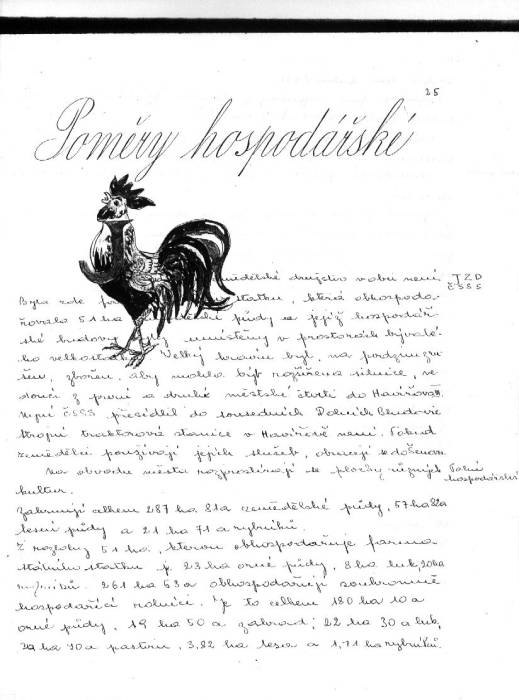 25
Poměry hospodářské
J zemědelské družstvo v obci není. JZD
Byla zde statku, která obhospoda- ČSSS
řovala 51 ha půdy a jejíž hospodář-
ské budovy umístěny v prostorách bývalé-
ho velkostatku. Velký kravín byl, na podzim
zbořen, aby mohla být rozšířena silnice, ve-
doucí z první a druhé městské čtvrti do Havířova II.
Nyní ČSSS přesídlil do sousedních Dolních Bludovic
Strojní traktorová stanice v Havířově není. Pokud
zemědělci používají jejich služeb, obracejí se do
Na obvodu města rozprostírají se plochy různých Polní
kultur. hospodářství
Zahrnují celkem 287 ha 81 a zemědělské půdy, 57 ha 82 a
lesní půdy a 21 ha 71 a rybníků.
Z rozlohy 51 ha, kterou obhospodařuje farma
státního statku je 23 ha orné půdy, 8 ha luk, 20 ha
rybníků. 261 ha 53 a obhospodařují soukromě
hospodařící rolníci. Je to celkem 180 ha 10 a
orné půdy, 19 ha 50 a zahrad, 22 ha 30 a luk,
ha 70 a pastvin, 3,82 ha lesa a 1,71 ha rybníků.